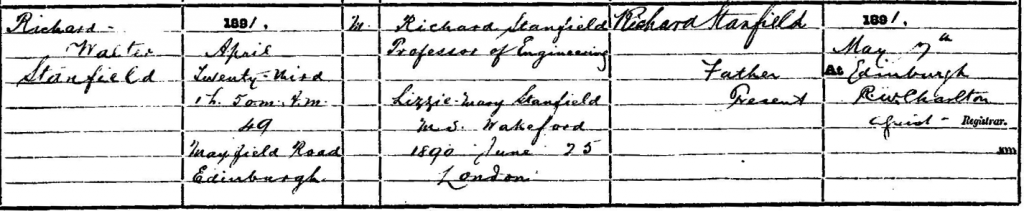 Richard
Walter
Stanfield
1891.
April
Twenty-third
1 h. 50 m. A.m.
49
Mayfield Road
Edinburgh
M.
Richard Stanfield
Professor of Engineering
Lizzie Mary Stanfield
M.S. Wakeford
1890 June 25
London
Richard Stanfield
Father
Present
1891.
May 7th
At Edinburgh
Registrar.